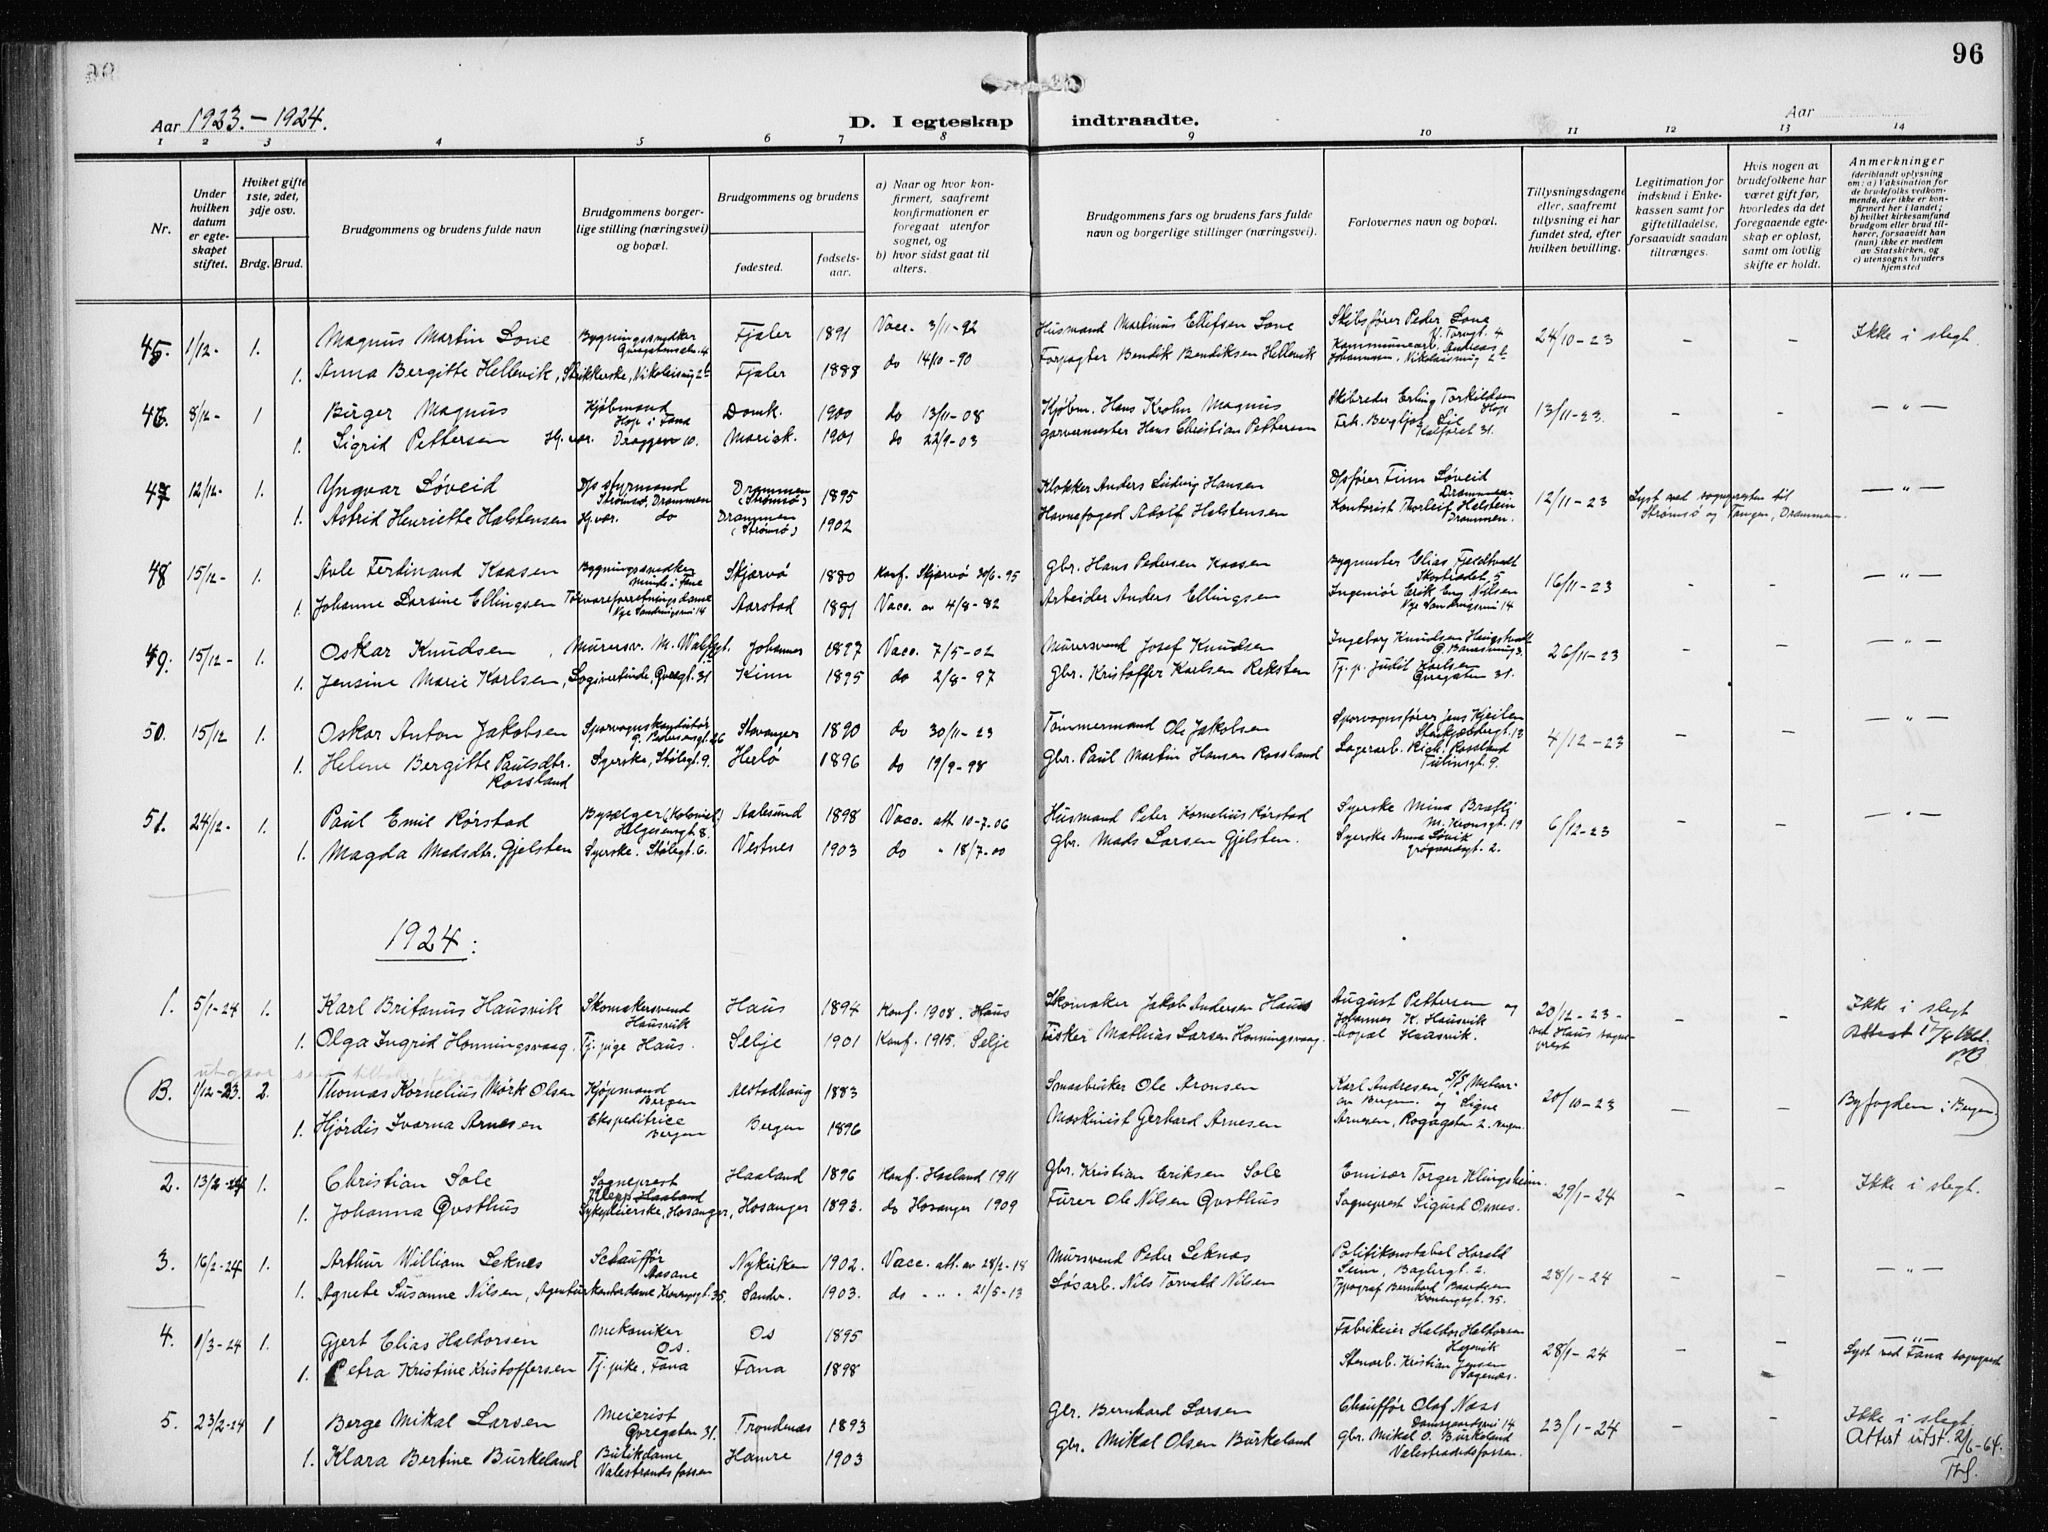 96
Aar 1923.-1924.
D. I egteskap indtraadte.
Aar
1 2 3 4 5 6 7 8 9 10 11 12 13 14
Nr.
Under hvilken datum er egteskapet stiftet.
Hviket gifte 1ste, 2det, 3dje osv.
Brdg. Brud.
Brudgommens og brudens fulde navn
Brudgommens borgerlige stilling (næringsvei) og bopæl.
Brudgommens og brudens
fødested.
fødselsaar.
a) Naar og hvor konfirmert, saafremt konfirmationen er foregaat utenfor sognet, og
b) hvor sidst gaat til alters.
Brudgommens fars og brudens fars fulde navn og borgerlige stillinger (næringsvei).
Forlovernes navn og bopæl.
Tillysningsdagene eller, saafremt tillysning ei har fundet sted, efter hvilken bevilling.
Legitimation for indskud i Enkekassen samt for giftetilladelse, forsaavidt saadan tiltrænges.
Hvis nogen av brudefolkene har været gift før, hvorledes da det foregaaende egteskap er opløst, samt om lovlig skifte er holdt.
Anmerkninger (deriblandt oplysning om: a) Vaksination for de brudefolks vedkommende, der ikke er konfirmert her i landet; b) hvilket kirkesamfund brudgom eller brud tilhører, forsaavidt han (hun) ikke er medlem av Statskirken, og c) utensogns bruders hjemsted
45. 1/12- 1. Magnus Martin Lone Bygningssnedker Fjaler 1891 Vacc. 3/11-92 Husmand Martinus Ellefsen Lone Skibsfører Peder Lone 24/10-23 - - Ikke i slegt.
1. Anna Bergitte Hellevik, Strikkerske, Nikolaismug 2b Fjaler 1888 do 14/10-90 Forpagter Bendik Bendiksen Hellevik Kommunearb. Andreas Johannesen, Nikolaismug 2b
46. 8/12- 1 Birger Magnus Kjøbmand Hop i Fana Domk. 1900 do 13/11-08 Kjøbm. Hans Krohn Magnus Skibreder Erling Torkildsen Hop 13/11-23. - - - " -
1. Sigrid Pettersen Hj. vær. Dræggen 10. Mariak. 1901 do 22/9-03 Garvermester Hans Christian Pettersen Frk. Bergljot Lie Kalfaret 31.
47 12/12- 1. Yngvar Løveid D/s styrmand Strømsø, Drammen Drammen (Strømsø) 1895 Klokker Anders Ludvig Hansen D/sfører Finn Løveid Drammen 12/11-23 Lyst ved sognepresten til Strømsø og Tangen, Drammen. - " -
1. Astrid Henriette Halstensen Hj. vær. do Drammen (Strømsø) 1902 Havnefoged Adolf Halstensen Kontorist Thorleif Halstein Drammen.
48 15/12- 1. Avle Ferdinand Kaasen Bygningssnedker Minde i Fane Skjærvø 1880 Konf. Skjærvø 20/6-95 Gbr. Hans Pedersen Kaasen Bygmester Elias Fjeldtvedt 16/11-23 - - - " -
1. Johanne Larsine Ellingsen Nye Sandviksvei 14 Aarstad 1881 Vacc. av 4/8-82 Arbeider Anders Ellingsen Ingeniør Erik Eng Nilsen Nye Sandviksvei 14
49. 15/12- 1. Oskar Knudsen, Murersv. Johannes 1897 Vacc. 7/5-02 Murersvend Josef Knudsen Ingeborg Knudsen 26/11-23 - - - " -
1. Jensine Marie Karlsen, Logivertinde, Øvregt. 31 Kinn 1895 do 2/8-97 Gbr. Kristoffer Karlsen Reksten Tj. p. Judit Karlsen Øvregaten 31.
50. 15/12 1. Oskar Anton Jakobsen Sporvogns Stavanger 1890 do 30/11-23 Tømmermand Ole Jakobsen Sporvognsfører Jens Kjeilen 4/12-23 - - - " -
1. Helene Bergitte Paulsdtr. Rossland Syerske, Stølegt. 9. Herlø 1896 do 19/9-98 Gbr. Paul Martin Hansen Rossland Lagerarb. Rich. Rossland Tulinsgt. 9.
51. 24/12- 1. Paul Emil Rørstad Bysælger (Kolonial) Helgesengt 8. Aalesund 1898 Vacc. att 10-7-06 Husmand Peter Kornelius Rørstad Syerske Mina Brafli M. Kronsgt. 19 6/12-23 - - - " -
1. Magda Madsdtr. Gjelsten Syerske. Stølegt. 6. Vestnes 1903 do " 18/7-00 Gbr. Mads Larsen Gjelsten. Syerske Anna Løvik
1924:
1. 5/1-24 1. Karl Britanus Hausvik Skomakersvend Hausvik Haus 1894 Konf. 1908. Haus Skomaker Jakob Andersen Haus August Pettersen og 20/12-23- ved Haus sogneprest - - Ikke i slegt
1. Olga Ingrid Honningsvaag Tj. pige Haus. Selje 1901 Konf. 1915. Selje Fisker Mathias Larsen Honningsvaag. Johannes K. Hausvik bopæl Hausvik. Attest
B. 1/12-23. 2. Thomas Kornelius Mörk Olsen Kjøpmand Bergen Alstadhaug 1883 Smaabruker Ole Aronsen Karl Andresen, D/S "Meteor" av Bergen. og Signe 20/10-23 - - Byfogden i Bergen
1. Hjördis Ivarna Arnesen Ekspeditrice Bergen Bergen 1896 Maskinist Gerhard Arnesen Arnesen,
2. 13/2-24 1. Christian Sole Sogneprest Klepp Haaland Haaland 1896 Konf. Haaland 1911 Gbr. Kristian Eriksen Sole Emisær Torger Klingsheim. 29/1-24 - - Ikke i slegt.
1. Johanna Qvsthus Sykepleierske, Hosanger, Hosanger 1893. do Hosanger 1909 Furer Ole Nilsen Qvsthus Sogneprest Sigurd Osnes.
3. 16/2-24 1. Arthur William Leknes Schauffør Aasane Nykirken 1902. Vacc. att. av 28/2-18 Mursvend Peder Leknæs Politikonstabel Harald Seim, Baglergt. 2. 28/1-24 - - - " -
1. Agnete Susanne Nilsen, Agentur Kontordame 35. Sandv. 1903. do " " 21/5-13 Løsarb. Nils Torvald Nilsen Typograf Bernhard 35.
4. 1/3-24 1. Gjert Elias Haldorsen Mekaniker Os. Os 1895 Fabrikeier Haldor Haldorsen Hegvik 28/1-24 - - - " - Lyst ved Fana sogneprest
1. Petra Kristine Kristoffersen Tj. pike, Fana Fana 1898 Stenarb. Kristian Jensen
5. 23/2-24 1 Berge Mikal Larsen Meierist Øvregaten 31. Trondenæs 1893 Gbr. Bernhard Larsen Chauffør Olaf Næss Damsgaardsvei 14 23/1-24 - - Ikke i slegt.
1. Klara Bertine Burkeland Butikdame Valestrandsfossen Hamre 1903 Gbr. Mikal Olsen Burkeland Gbr. Mikal O. Burkeland Valestrandsfossen. Attest utst. 2/6-64.